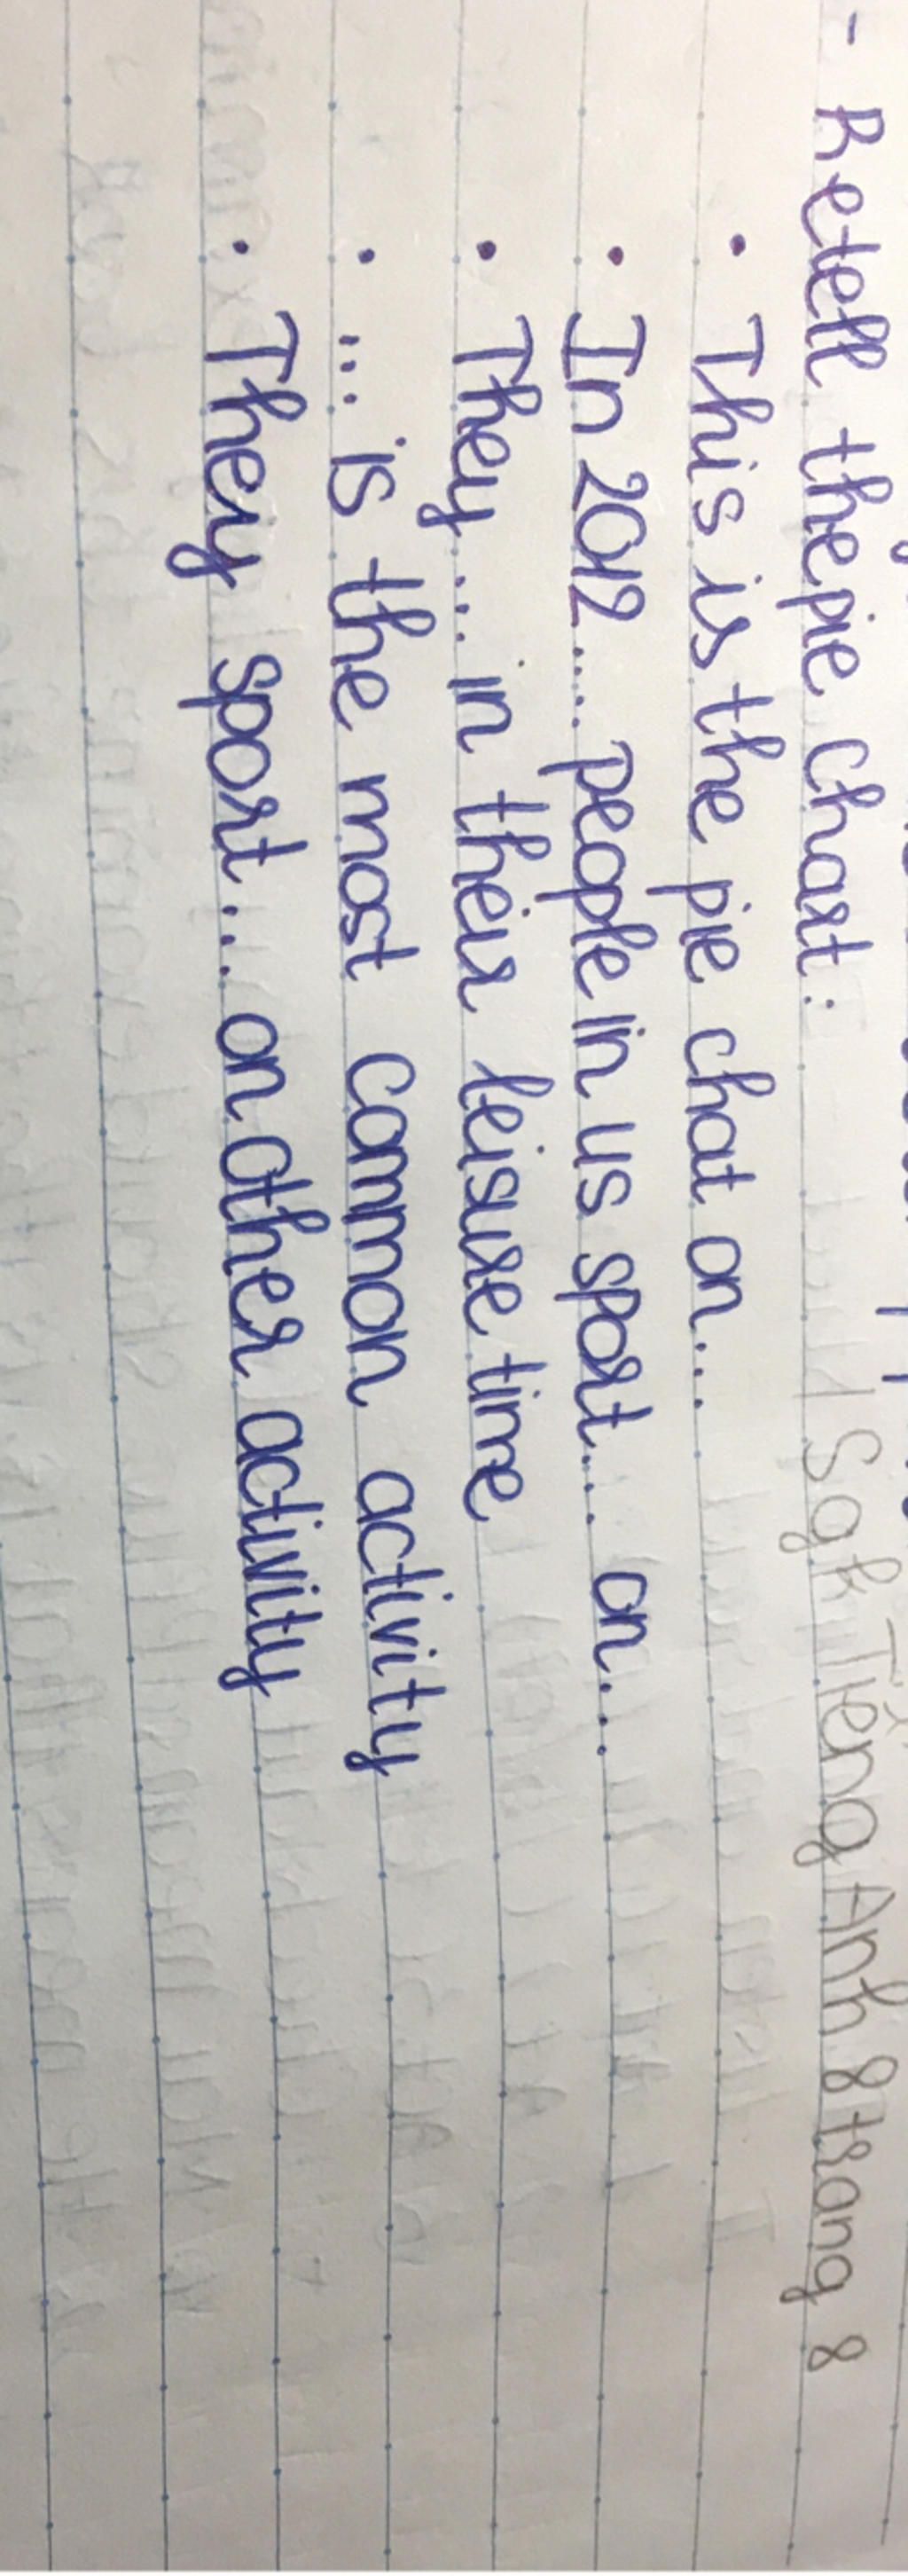 - Retell the pie chart: Sgk Tiếng Anh 8 trang 8
• This is the pie chat on...
• In 2012.... people in us sport... on...
• They... in their leisure time
• ... is the most common activity
• They sport... on other activity